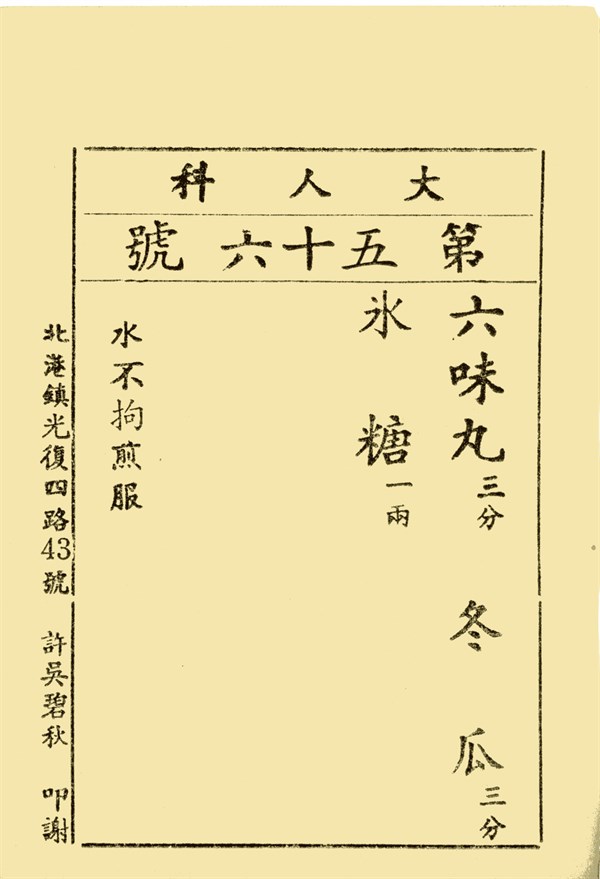 大人科
第五十六號
六味丸三分 冬瓜三分
氷糖一兩
水不拘煎服
北港鎮光復四路43號 許吳碧秋 叩謝